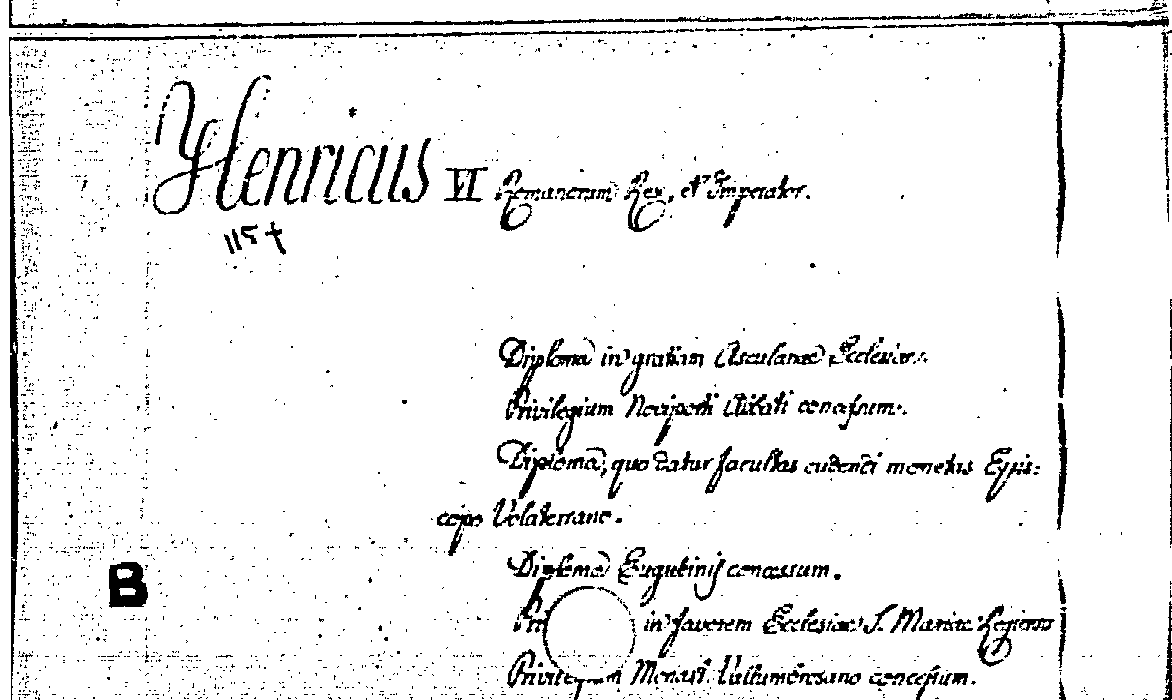 Henricus VI Romanorum Rex, et Imperator.
115
Diploma in gratiam Asculanae Ecclesiae.
Privilegium Civitati concessum.
Diploma, quo datur facultas cudendi monetas Epis:
copo Volaterrano.
Diploma Eugubinis concessum.
B
in favorem Ecclesiae S. Mariae
Privilegium Monast. Vallumbrosano concessum.